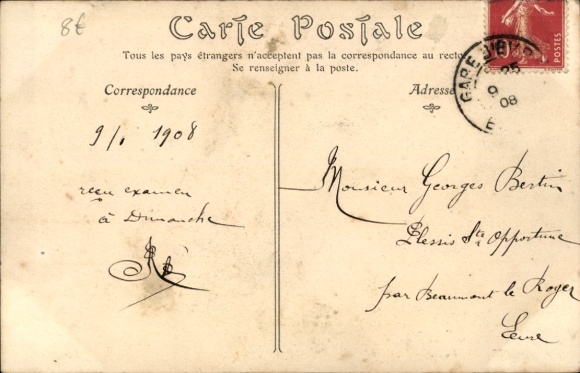 8€
Carte Postale
Tous les pays étrangers n'acceptent pas la correspondance au recto
Se renseigner à la poste.
Correspondance
Adresse
GARE
25
9
08
9/1 1908
reçu examen
à Dimanche
Monsieur Georges Bertin
Plessis Ste Opportune
par Beaumont le Roger
Eure